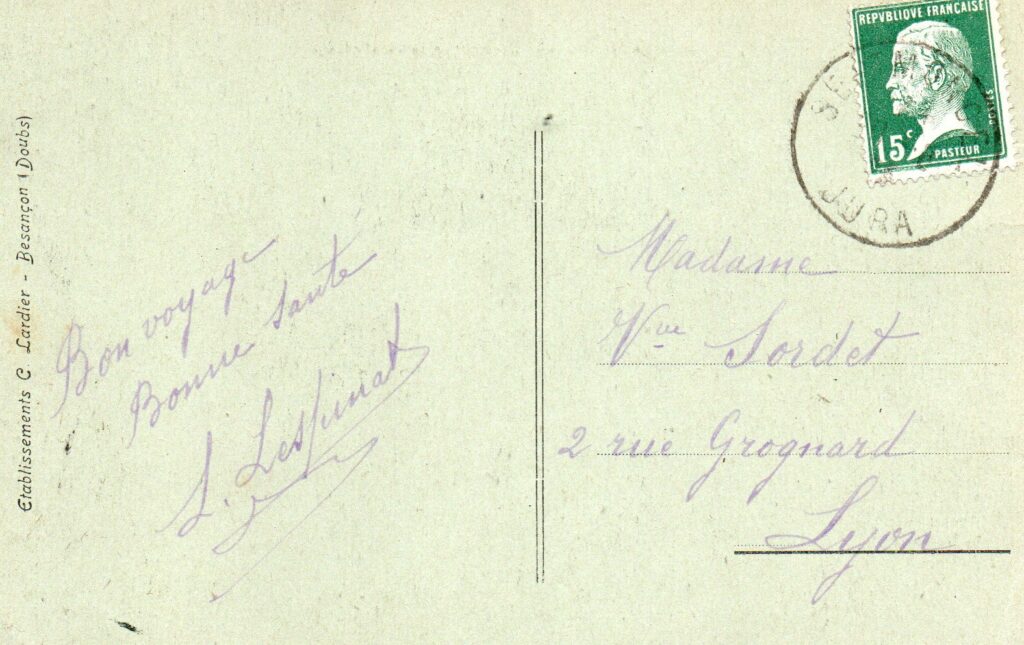 Etablissements C. Lardier - Besançon (Doubs)
Bon voyage
Bonne Santé
L.
REPVBLIQUE FRANÇAISE
POSTES
15c
PASTEUR
JURA
Madame
Vve Sordet
2 rue Grognard
Lyon